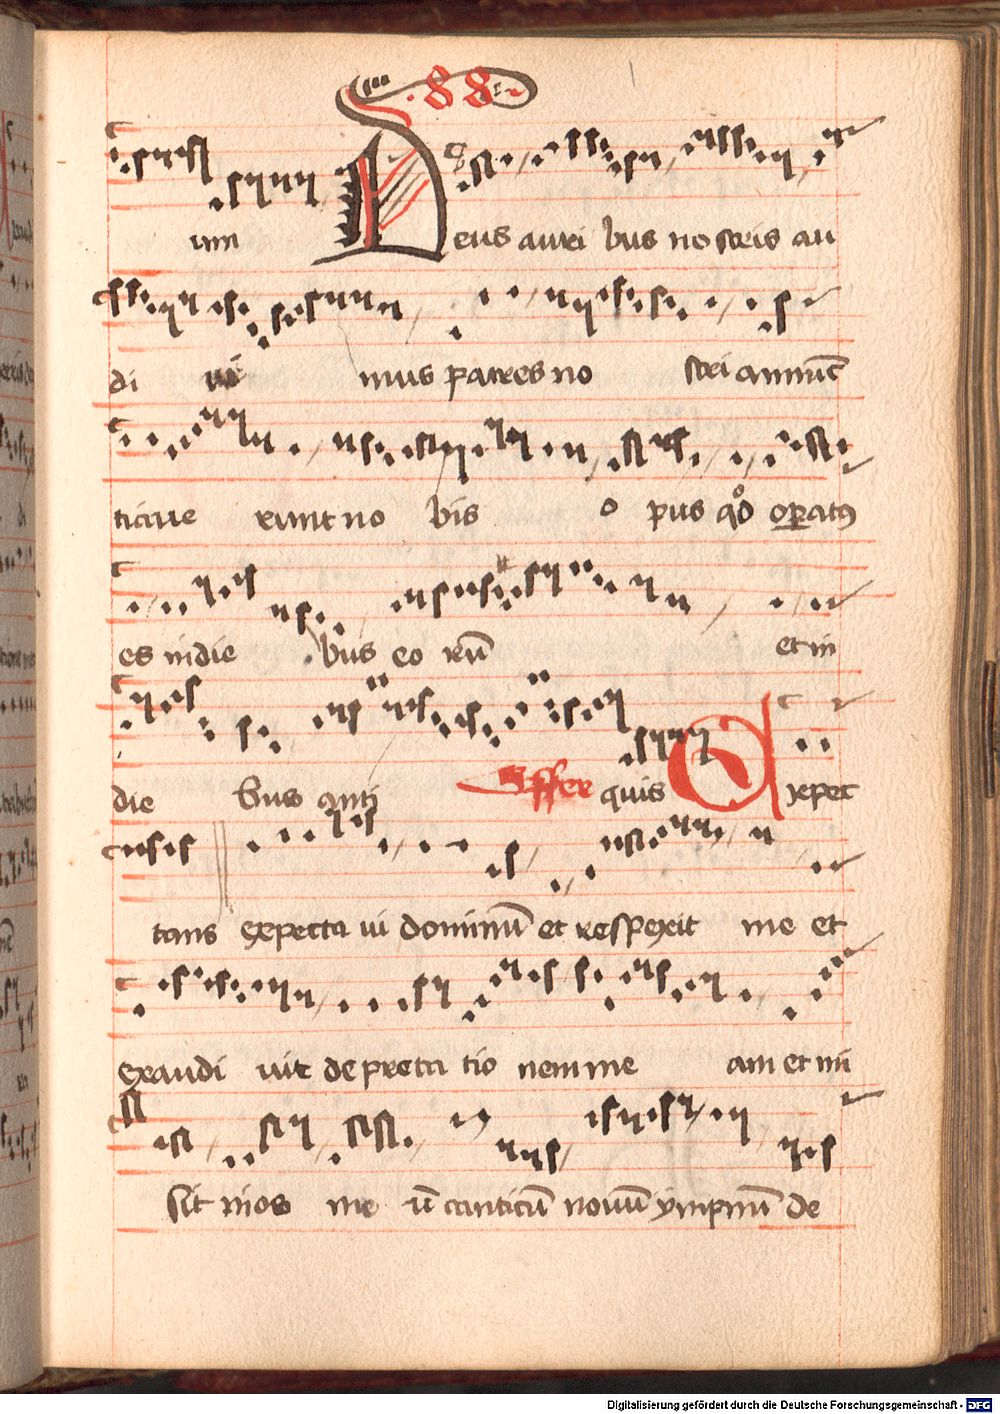 88
um Deus auri bus nostris au
di vi mus patres no stri annūc
tiave runt no bis o pus qđ operatꝰ
es in die bus eo rū et in
die bus anti Offer quis Expec
tans expecta vi dominū et respexit me et
exaudi vit deprecta tio nem me am et mi
sit in os me ū canticū novū ympnū de
Digitalisierung gefördert durch die Deutsche Forschungsgemeinschaft - DFG